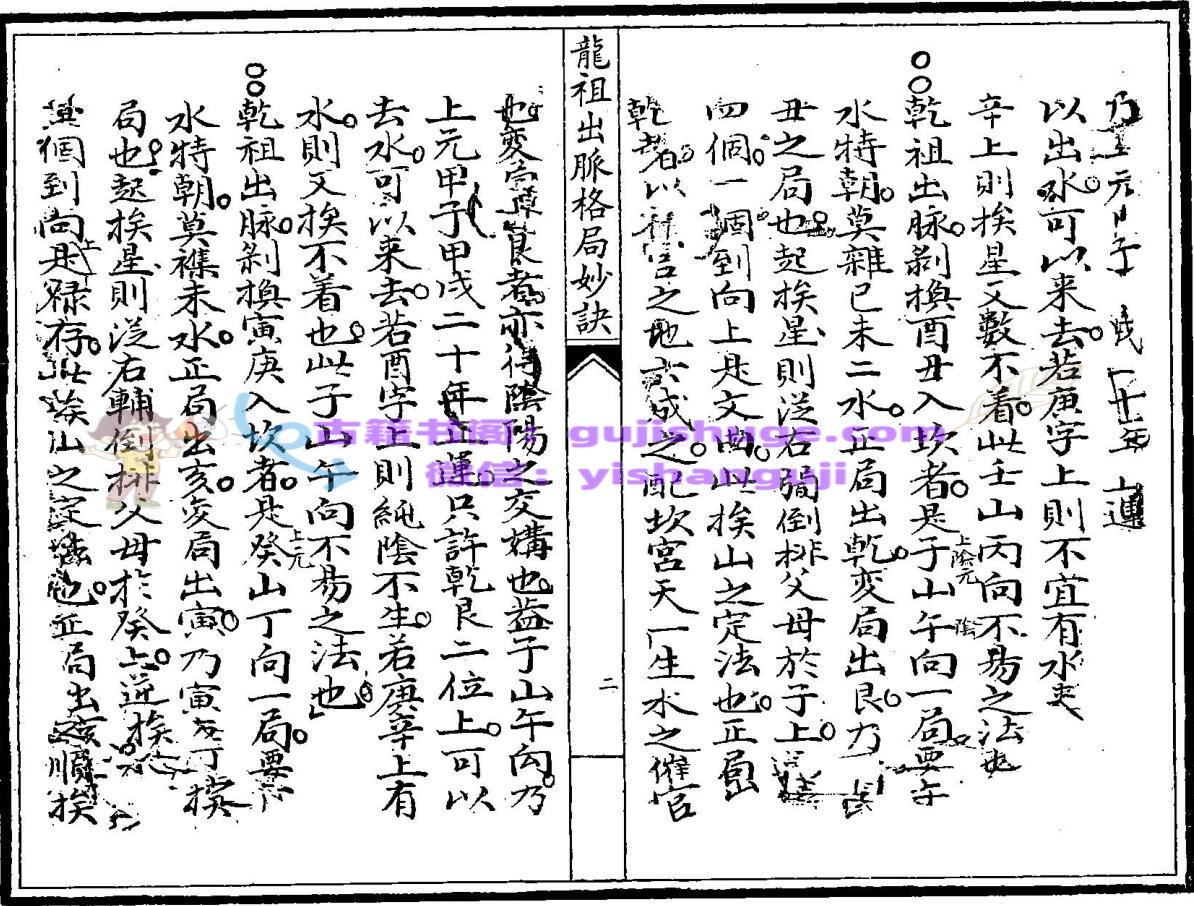 乃上元甲子 二十年 上運
以出水可以来去若庚字上則不宜有水来
辛上則挨星又數不着此壬山丙向不易之法也
乾祖出脉剝換酉丑入坎者是子山午向一局要午
上元 陰 陰
水特朝莫雜已未二水正局出乾変局出艮乃
丑之局也起挨星則従右弼倒排父母於子上
四個一個到向上是文曲此挨山之定法也正局出
乾者以 官之地六成之配坎宮天一生水之催官
龍祖出脈格局妙訣
二
也変 艮者亦得陰陽之交媾也蓋子山午向乃
上元甲子甲戌二十年上運只許乾艮二位上可以
去水可以来去若酉字上則純陰不生若庚辛上有
水則又挨不着也此子山午向不易之法也
乾祖出脉剝換寅庚入坎者是癸山丁向一局要
上元
水特朝莫襍未水正局出亥変局出寅乃寅
局也起挨星則従右輔倒排父母於癸上逆挨
個到向是禄存此挨山之定法也正局出亥順挨
上
古籍书阁 gujishuge.com
微信：yishanguji